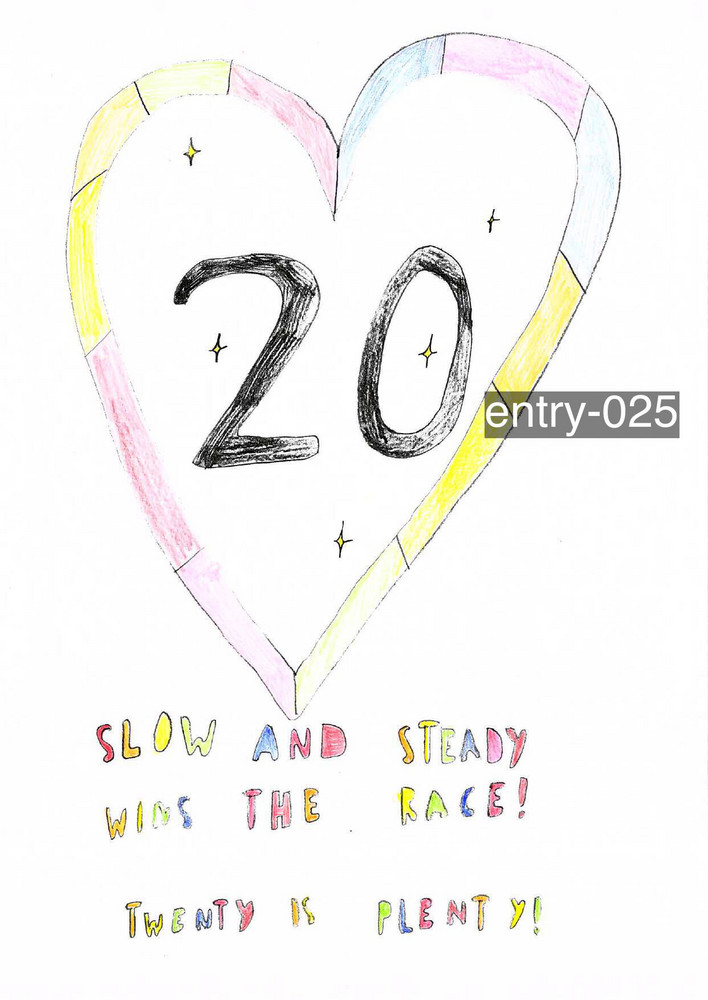 20
entry-025
SLOW AND STEADY
WINS THE RACE!
TWENTY IS PLENTY!